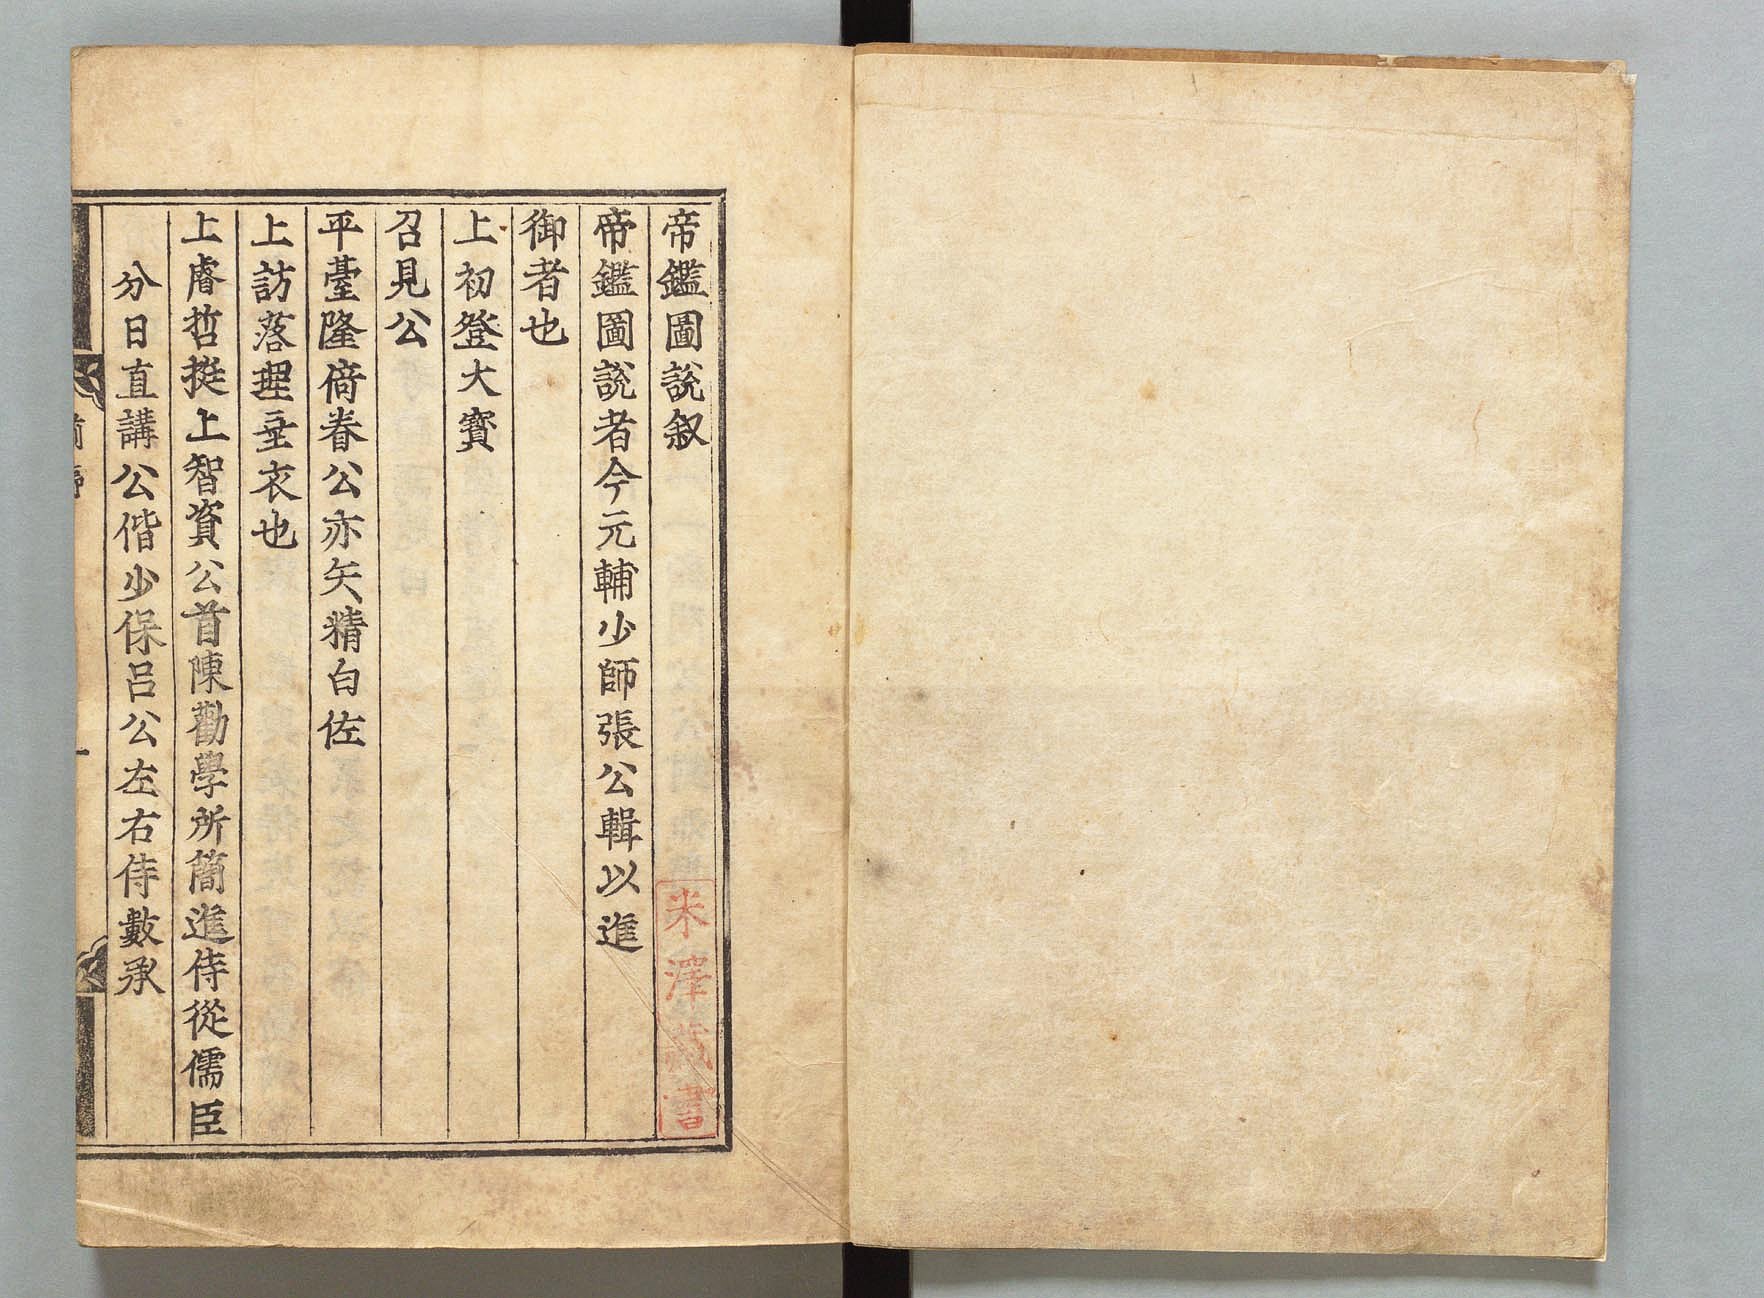 帝鑑圖說叙
帝鑑圖說者今元輔少師張公輯以進
御者也
上初登大寶
召見公
平臺隆倚眷公亦矢精白佐
上訪落理垂衣也
上睿哲挺上智資公首陳勸學所簡進侍從儒臣
分日直講公偕少保呂公左右侍數承
前序
一
米澤藏書